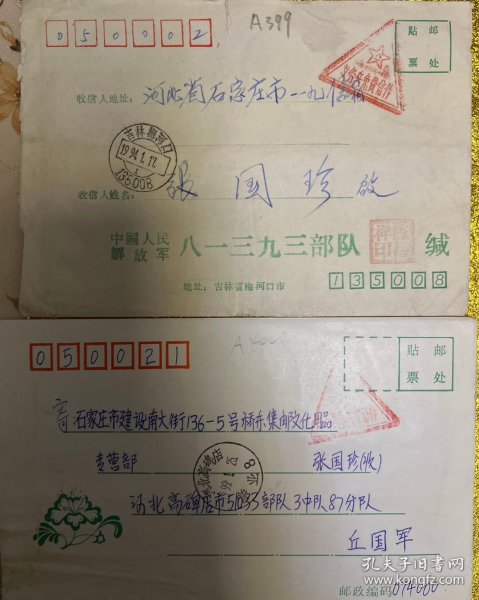 A399
050002
贴 邮
票 处
义务兵免费信件
收信人地址：河北省石家庄市一一九信箱
吉林梅河口
1994.1.12
135008
收信人姓名：張 国 珍 啟
中国人民
解放军
八一三九三部队 缄
地址：吉林省梅河口市
135008
050021
贴 邮
票 处
寄 石家庄市建设南大街136-5号桥东集邮文化用品
专营部 张国珍(收)
河北高碑店市51033部队3中队87分队
丘国军
邮政编码074000
孔夫子旧书网
www.kongfz.com